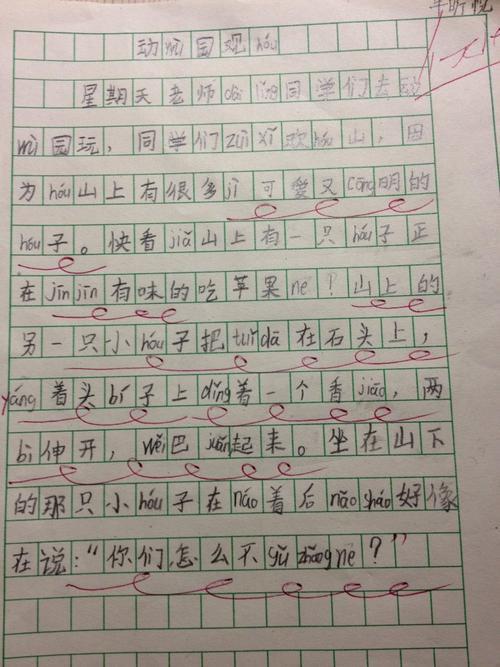 动wù园观hóu
星期天老师dài lǐng同学们去动
wù园玩，同学们zuì xǐ欢hóu山，因
为hóu山上有很多jī可爱又cōng明的
hóu子。快看jiǎ山上有一只hóu子正
在jīn jīn有味的吃苹果ne？山上的
另一只小hóu子把tuǐ dā在石头上，
yáng着头bí子上dǐng着一个香jiāo，两
bì伸开，wěi巴juǎn起来。坐在山下
的那只小hóu子在náo着后nǎo sháo好像
在说：“你们怎么不gǔ zhǎng ne？”